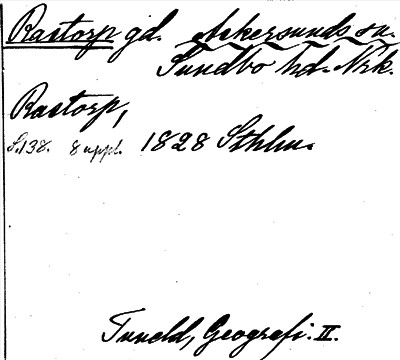 Rastorp gd. Askersunds sn.
Sundbo hd. Nrk.
Rastorp,
S.138. 8 uppl. 1828 Sthlm.
Tuneld, Geografi. II.